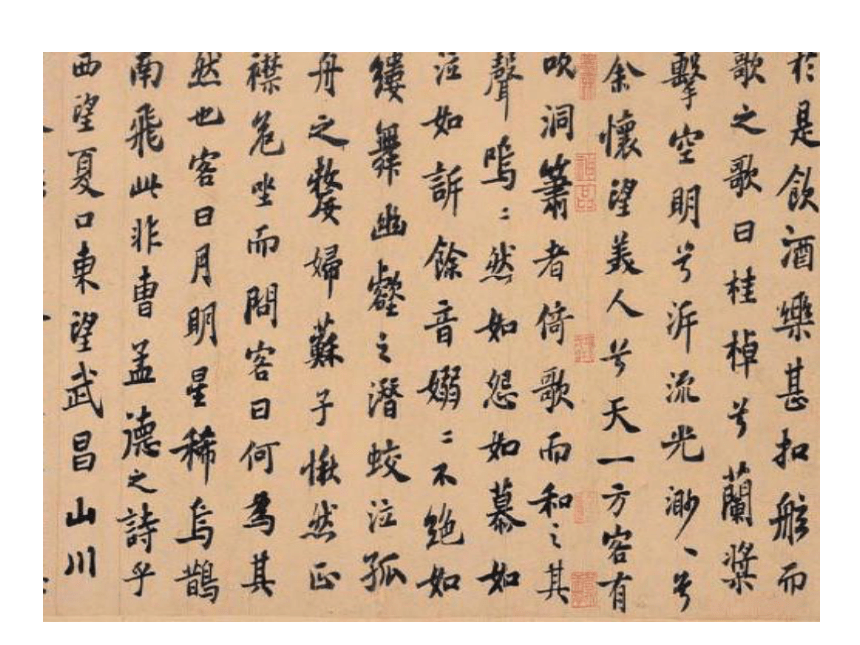 於是飲酒樂甚扣舷而
歌之歌曰桂棹兮蘭槳
擊空明兮泝流光渺〻兮
余懷望美人兮天一方客有
吹洞簫者倚歌而和之其
聲嗚〻然如怨如慕如
泣如訴餘音嫋〻不絶如
縷舞幽壑之潛蛟泣孤
舟之嫠婦蘇子愀然正
襟危坐而問客曰何為其
然也客曰月明星稀烏鵲
南飛此非曹孟德之詩乎
西望夏口東望武昌山川